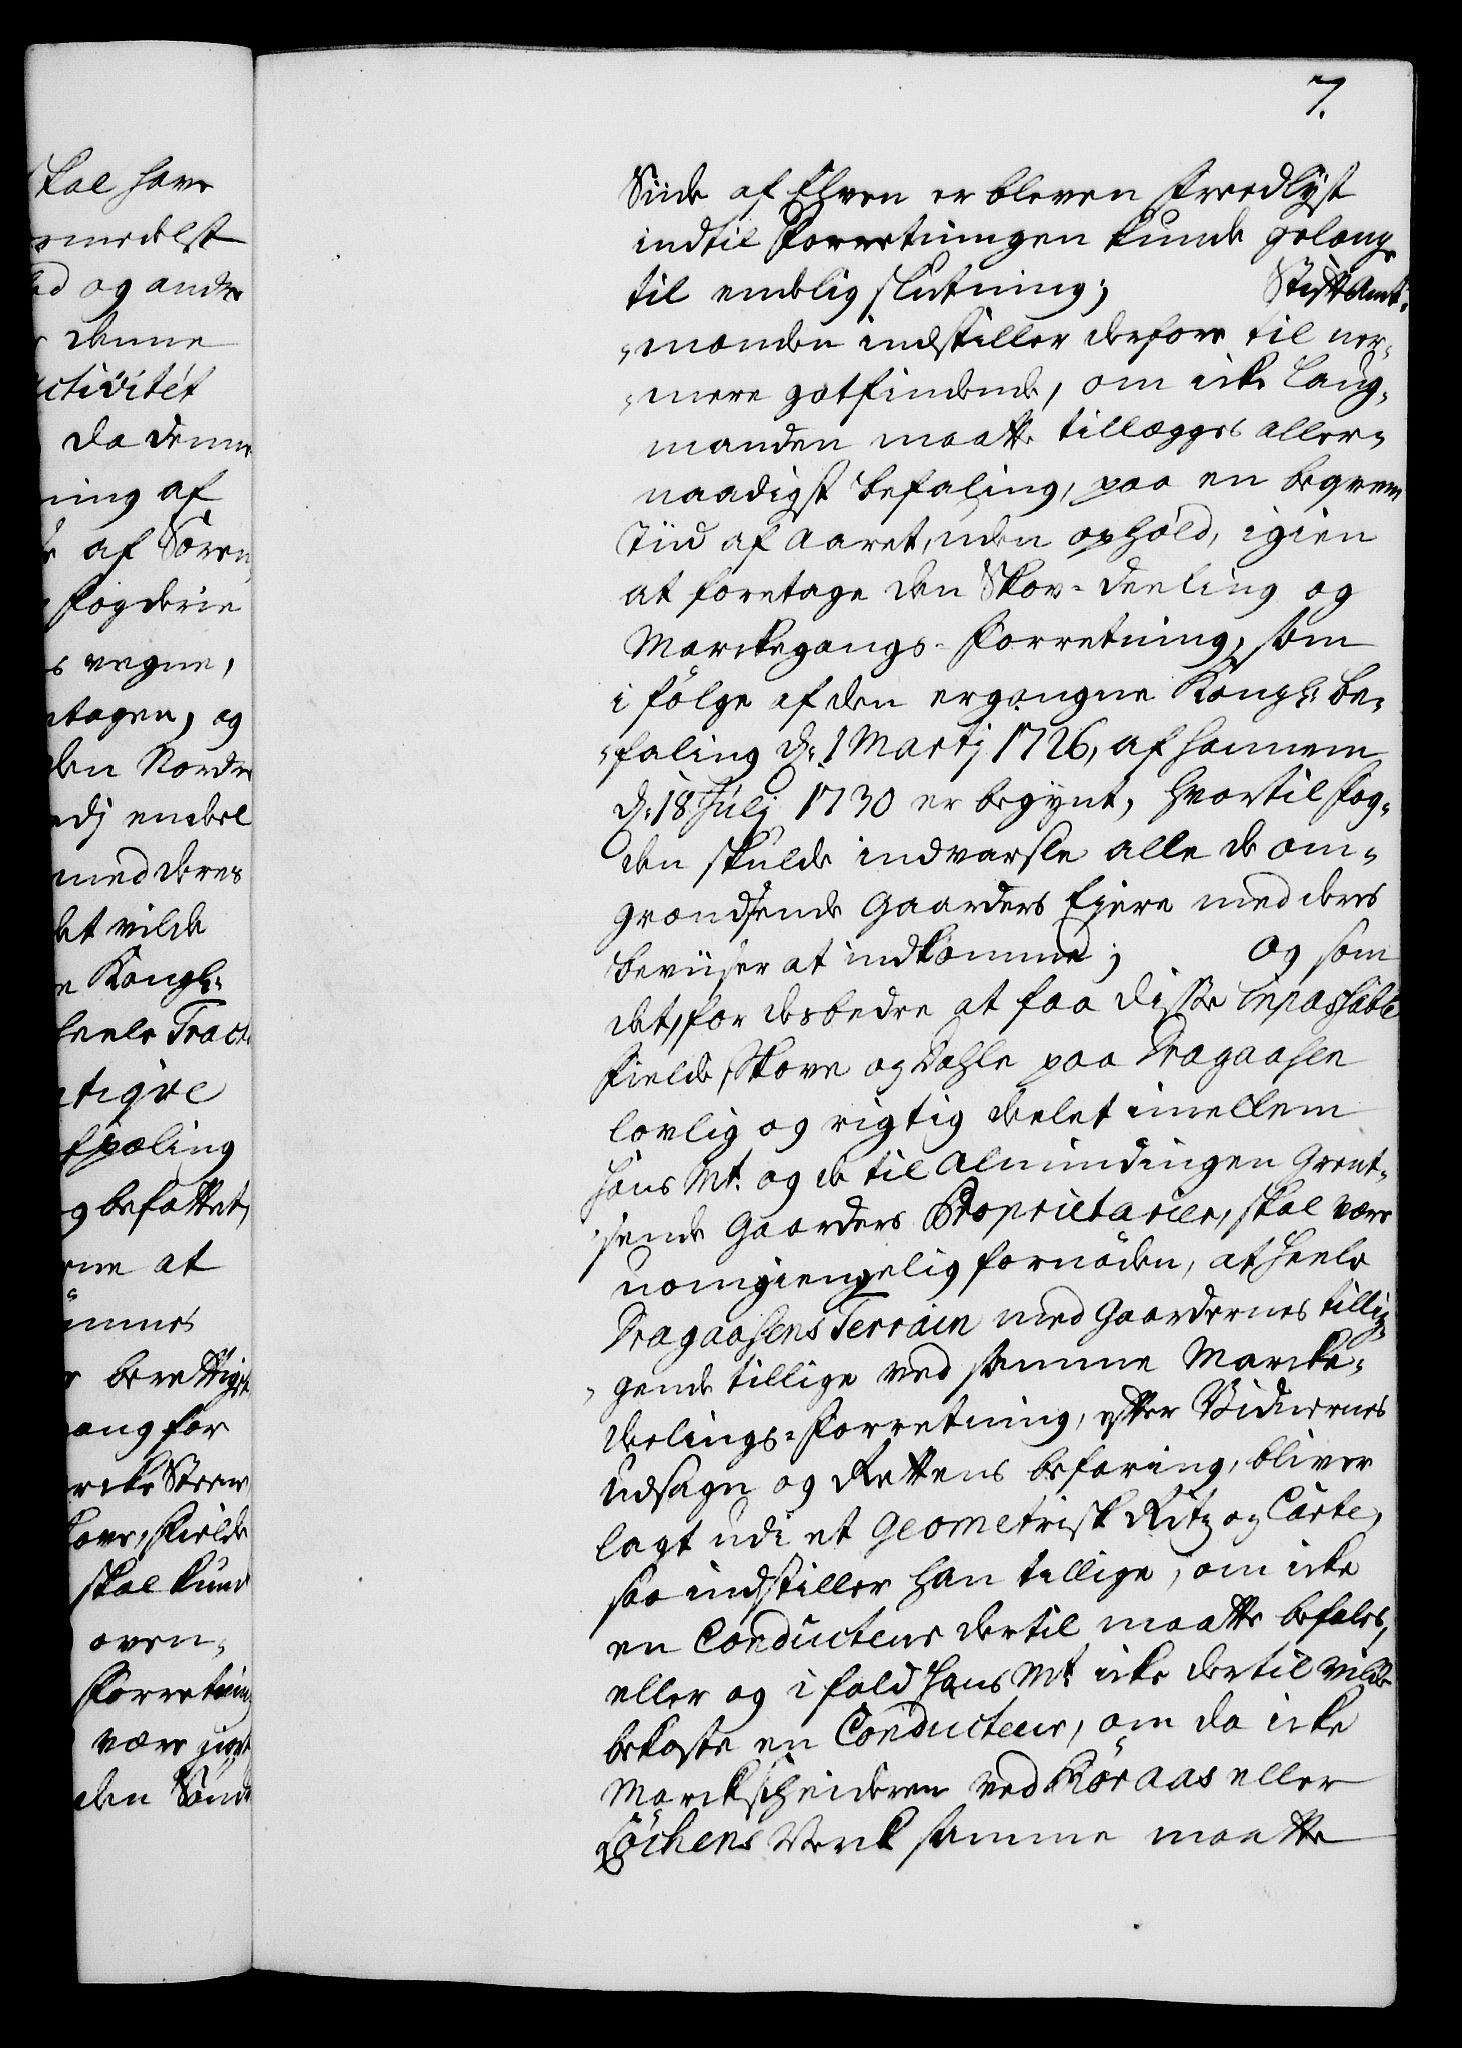 7.
Siide af Elven er bleven Freedlyst
indtil Forretningen kunde gelange
til endelig slutning; Stift Amt-
manden indstiller derfore til ner-
mere gotfindende, om icke Laug-
manden maatte tillegges aller-
naadigst befaling, paa en beqvem
Tiid af Aaret, uden ophold, igien
at foretage den Skov-deeling og
Marckegangs-Forretning, som
i følge af den ergangne Kongl: be-
faling d: 1 Martj 1726, af hannem
d: 18 Julj 1730 er begynt, hvortil Fog-
den skulde indvarsle alle de om-
grændsende Gaarders Ejere med deres
beviiser at indkomme; og som
det, for desbedre at faa disse inpassable
Fielde, Skove og Dahle paa Dragaasen
lovlig og rigtig deelet imellem
Hans Mt. og de til Almindingen Grent-
sende Gaarders Proprietarier, skal være
uomgiengelig fornøden, at heele
Dragaasens Terrain med Gaardernes tillig-
gende tillige ved samme Marcke-
deelings-Forretning, efter Vidnernes
udsagn og Rettens befaring, bliver
lagt udi et Geometrisk Ritz og Carte,
saa indstiller han tillige, om icke
en Conducteur dertil maatte befales,
eller og i fald Hans Mt. icke dertil vilde
bekoste en Conducteur, om da icke
Marckscheideren ved Röraas eller
Löckens Verck samme maatte
skal have
medelst
og andre
denne
ctivitét
da denne
ning af
af Sören
Fogderie
s vegne,
tagen, og
den Nordre
endeel
med deres
et vilde
Kongl:
heele Tract
tiqve
pæling
befattet,
ne at
mmes
berettiget
ang for
rcke Steene
Fielde
skal kund
oven-
Forretning
være giort
den Sönde